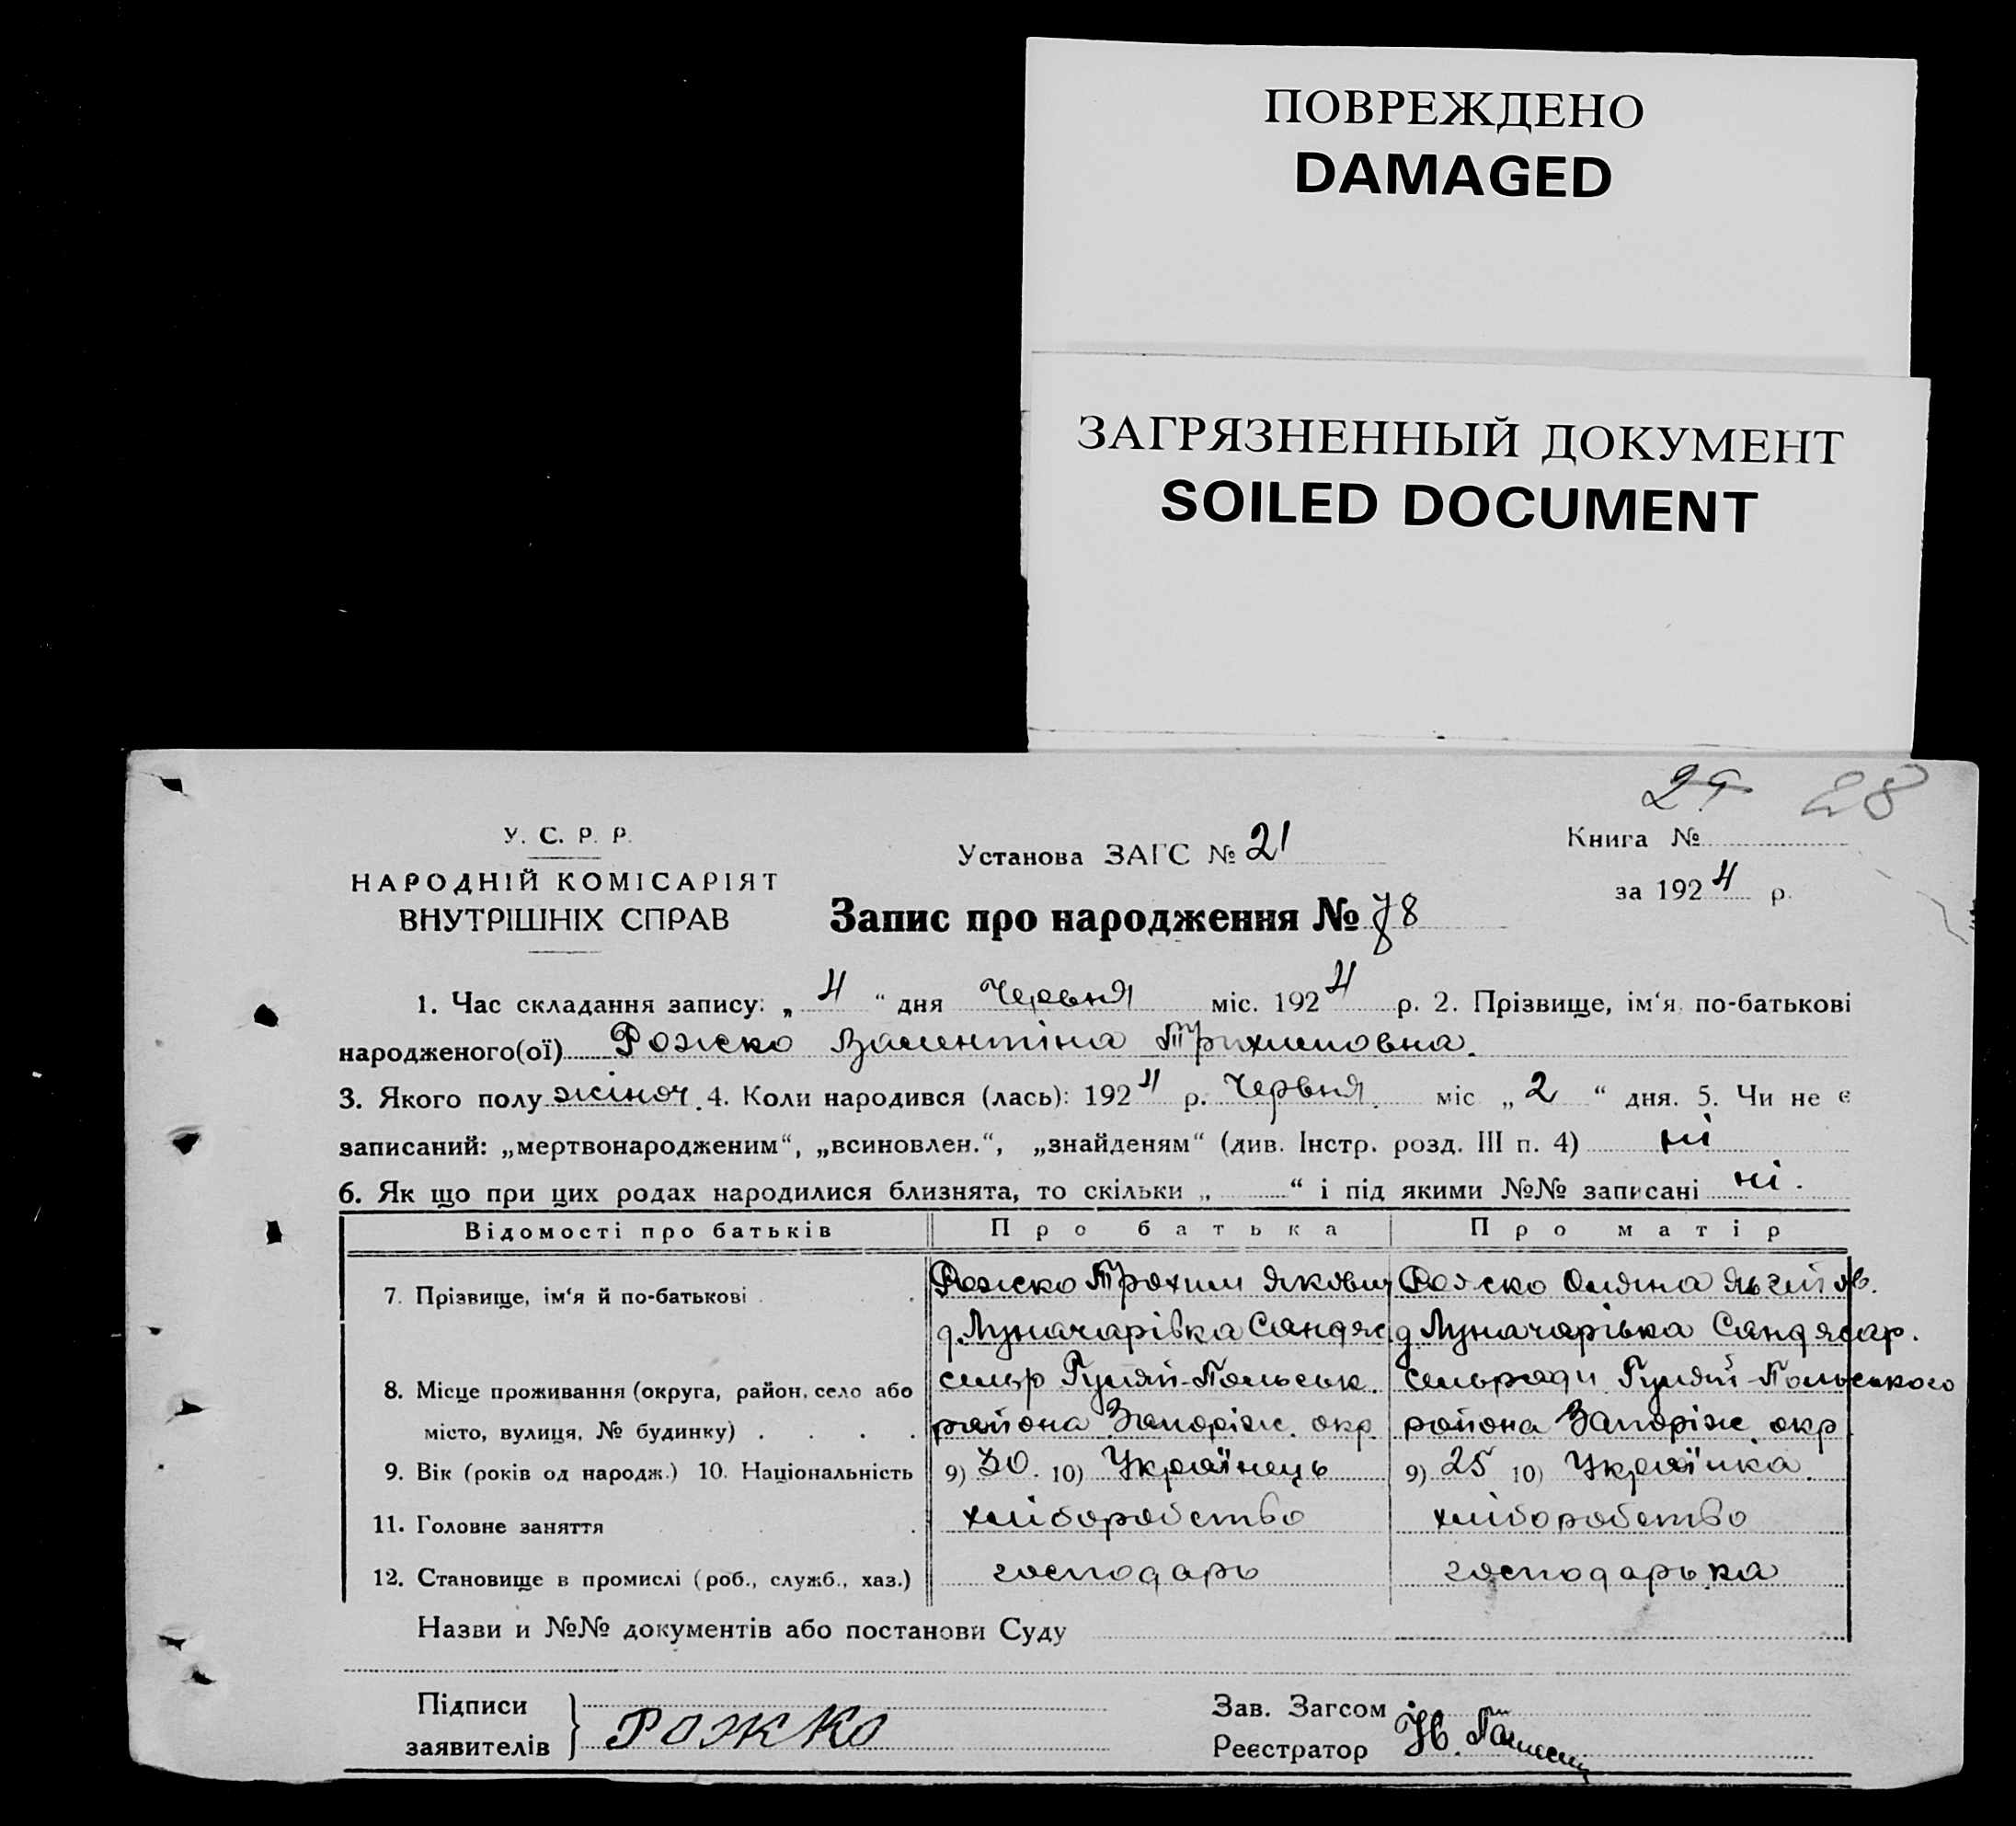 ПОВРЕЖДЕНО
DAMAGED
ЗАГРЯЗНЕННЫЙ ДОКУМЕНТ
SOILED DOCUMENT
29 28
У. С. Р. Р.
НАРОДНІЙ КОМІСАРІЯТ
ВНУТРІШНІХ СПРАВ
Установа ЗАГС № 21
Книга №
за 1924 р.
Запис про народження № 78
1. Час складання запису: „ 4 “ дня Червня міс. 1924 р. 2. Прізвище, ім‘я, по-батькові
народженого(ої) Рожко Валентіна Трихимовна.
3. Якого полу жіноч. 4. Коли народився (лась): 1924 р. Червня. міс „ 2 “ дня. 5. Чи не є
записаний: „мертвонародженим“, „всиновлен.“, „знайденям“ (див. Інстр. розд. III п. 4) ні
6. Як що при цих родах народилися близнята, то скільки „ “ і під якими №№ записані ні.
Відомості про батьків Про батька Про матір
7. Прізвище, ім‘я й по-батькові . Рожко Трохим Якович Рожко Оляна
д. Луначарівка Сандяс. д Луначарівка Сандясар.
8. Місце проживання (округа, район, село або сельр Гуляй-Польськ. сельради Гуляй-Польського
місто, вулиця, № будинку) . . . . района Запоріж. окр. района Запоріж. окр
9. Вік (років од народж.) 10. Національність 9) 30. 10) Українець 9) 25 10) Українка.
11. Головне заняття хліборобство хліборобство
12. Становище в промислі (роб., служб., хаз.) господарь господарька
Назви и №№ документів або постанови Суду
Підписи
заявителів } Рожко
Зав. Загсом
Реєстратор